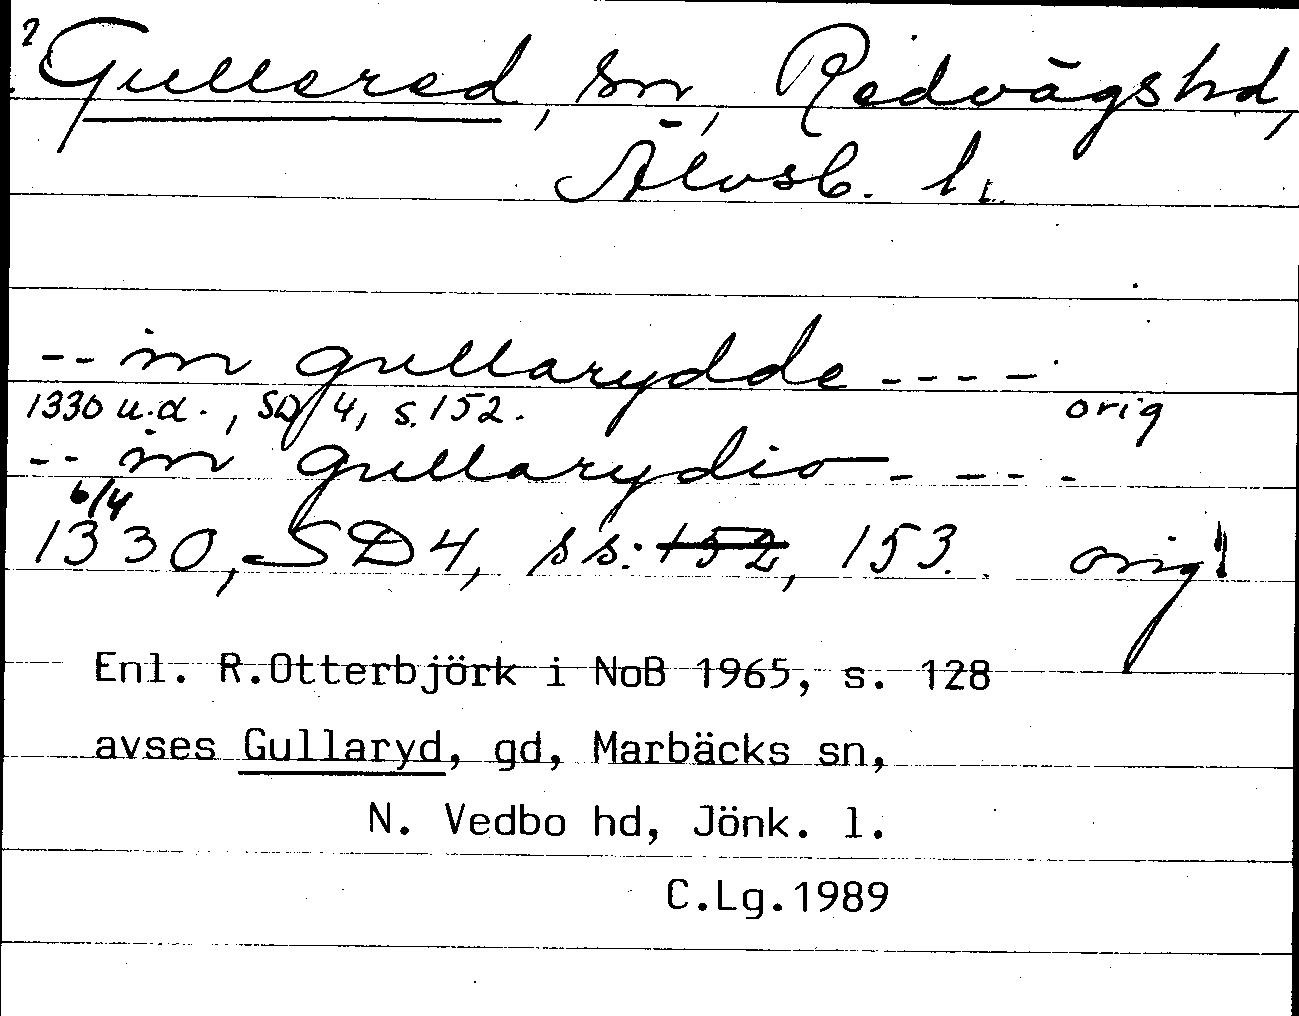 ? Gullered, sn, Redvägs hd,
Älvsb. l.
-- in gullarydde ----
1330 u.d., SD 4, s. 152. orig
-- in gullarydio ----
6/4
1330, SD 4, ss: 152, 153. orig!
Enl. R.Otterbjörk i NoB 1965, s. 128
avses Gullaryd, gd, Marbäcks sn,
N. Vedbo hd, Jönk. l.
C.Lg.1989